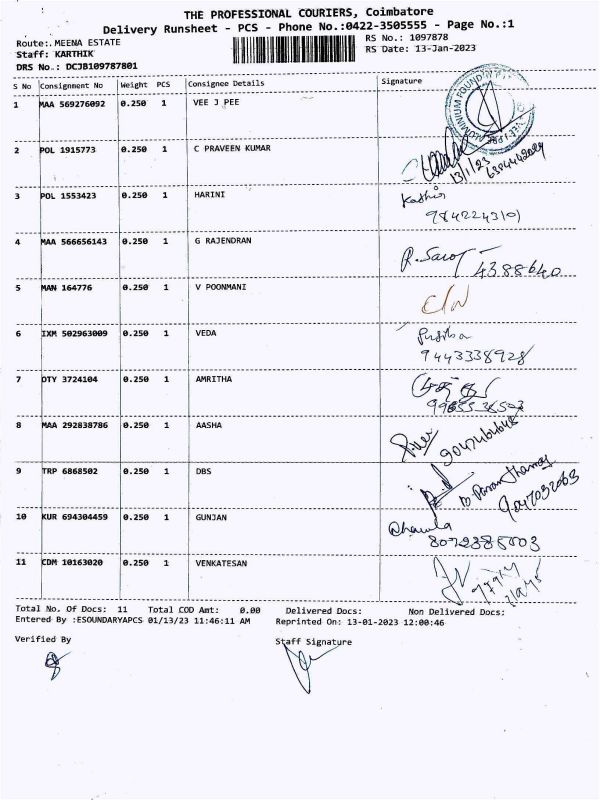 THE PROFESSIONAL COURIERS, Coimbatore
Delivery Runsheet - PCS - Phone No.:0422-3505555 - Page No.:1
Route:. MEENA ESTATE
RS No.: 1097878
Staff: KARTHIK
RS Date: 13-Jan-2023
DRS No.: DCJB109787801
S No Consignment No Weight PCS Consignee Details Signature
1 MAA 569276092 0.250 1 VEE J PEE
ALUMINIUM FOUNDRY
2 POL 1915773 0.250 1 C PRAVEEN KUMAR
13/1/23
3 POL 1553423 0.250 1 HARINI
9842243101
4 MAA 566656143 0.250 1 G RAJENDRAN
4388640
5 MAN 164776 0.250 1 V POONMANI
6 IXM 502963009 0.250 1 VEDA
9443338928
7 OTY 3724104 0.250 1 AMRITHA
8 MAA 292838786 0.250 1 AASHA
9 TRP 6868502 0.250 1 DBS
10 KUR 694304459 0.250 1 GUNJAN
11 CDM 10163020 0.250 1 VENKATESAN
Total No. Of Docs: 11 Total COD Amt: 0.00 Delivered Docs: Non Delivered Docs:
Entered By :ESOUNDARYAPCS 01/13/23 11:46:11 AM Reprinted On: 13-01-2023 12:00:46
Verified By Staff Signature